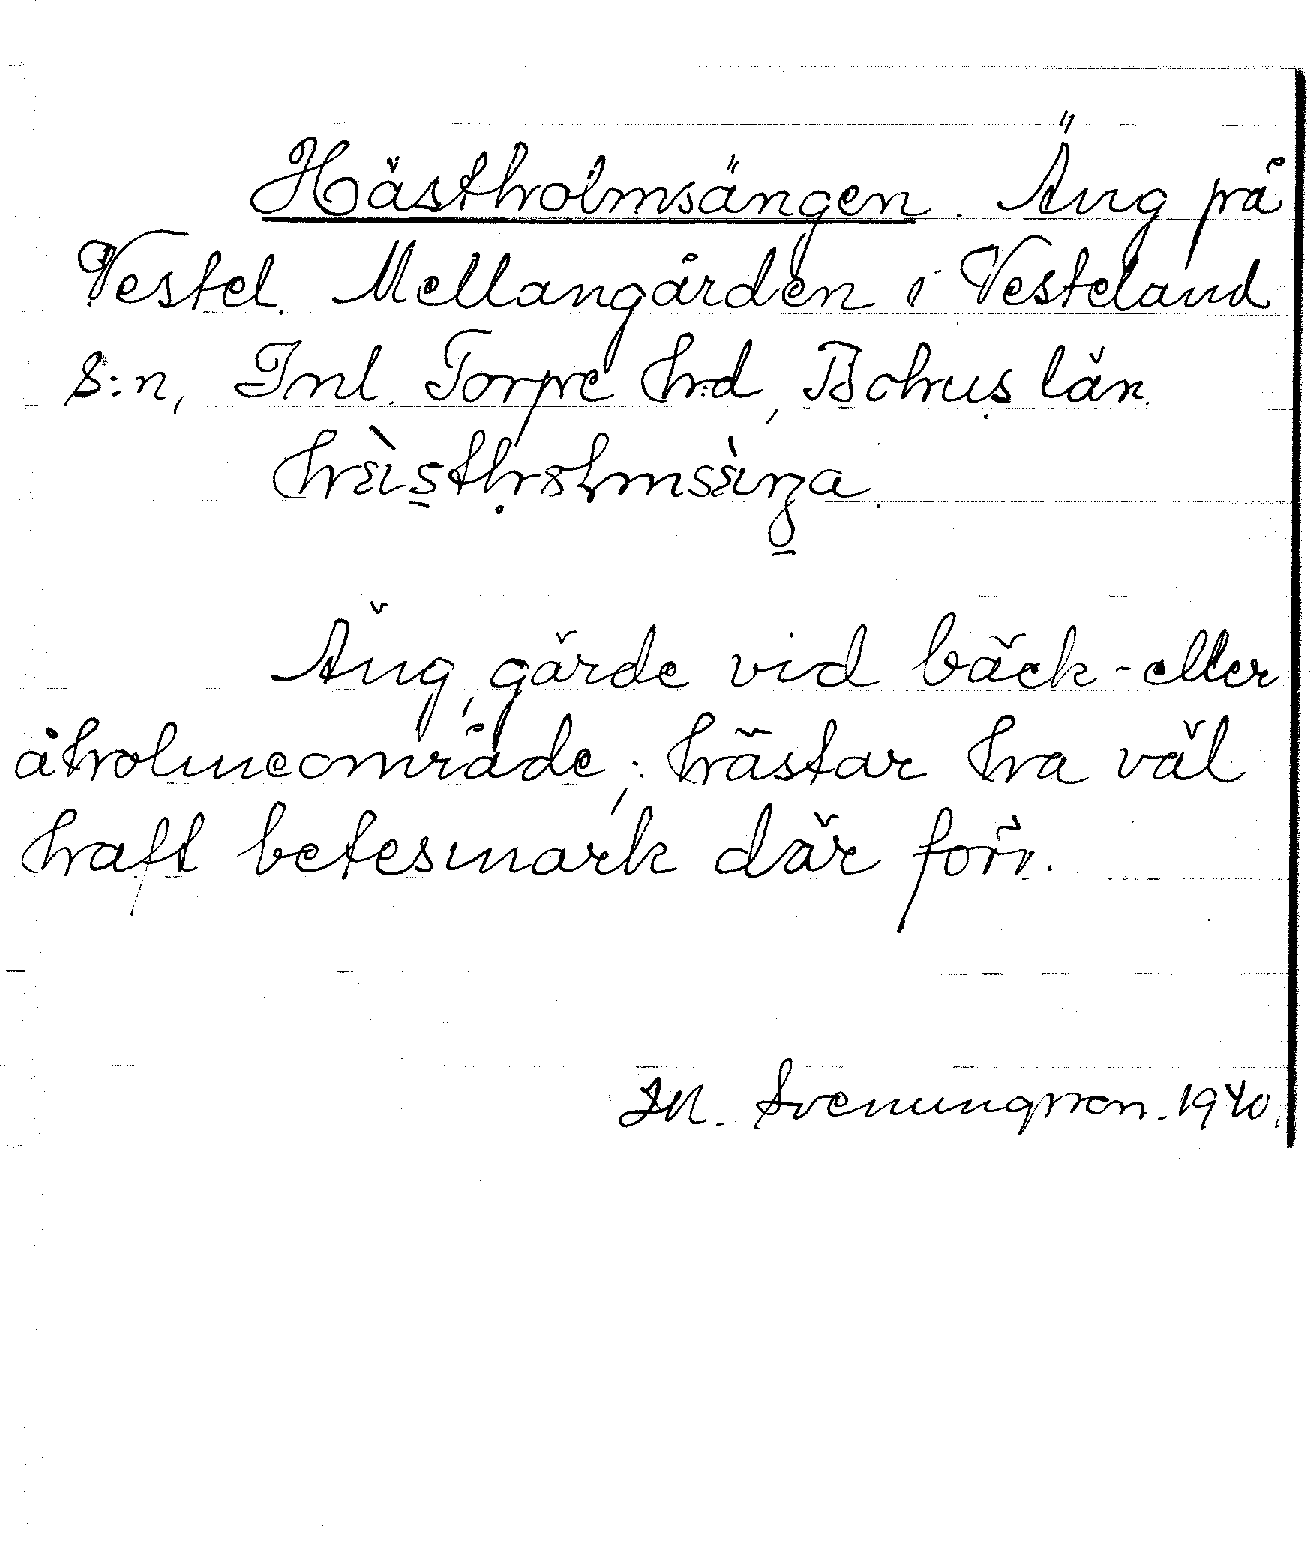 Hästholmsängen. Äng på
Vestel. Mellangården i Vesteland
s:n, Inl. Torpe hd, Bohus län.
Äng, gärde vid bäck- eller
åholmeområde; hästar ha väl
haft betesmark där förr.
M. Svenungsson. 1940.